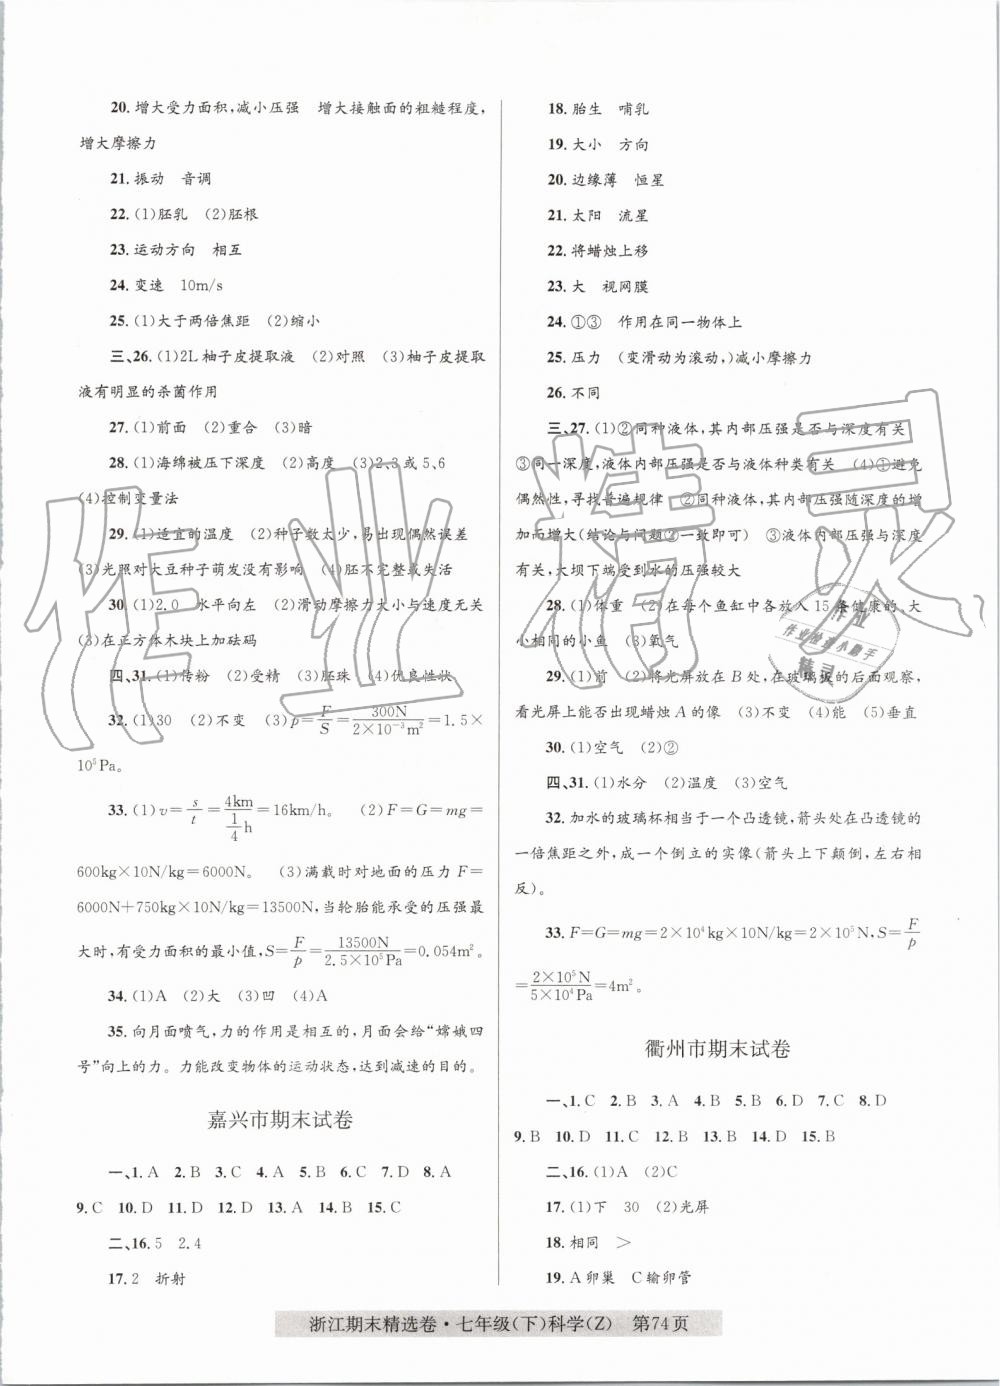 20.增大受力面积,减小压强　增大接触面的粗糙程度,
增大摩擦力
21.振动　音调
22.(1)胚乳　(2)胚根
23.运动方向　相互
24.变速　10m/s
25.(1)大于两倍焦距　(2)缩小
三、26.(1)2L柚子皮提取液　(2)对照　(3)柚子皮提取
液有明显的杀菌作用
27.(1)前面　(2)重合　(3)暗
28.(1)海绵被压下深度　(2)高度　(3)2、3或5、6
(4)控制变量法
29.(1)适宜的温度　(2)种子数太少,易出现偶然误差
(3)光照对大豆种子萌发没有影响　(4)胚不完整或失活
30.(1)2.0　水平向左　(2)滑动摩擦力大小与速度无关
(3)在正方体木块上加砝码
四、31.(1)传粉　(2)受精　(3)胚珠　(4)优良性状
32.(1)30　(2)不变　(3)p=F/S=300N/2×10⁻³m²=1.5×
10⁵Pa。
33.(1)v=s/t=4km/(1/4)h=16km/h。　(2)F=G=mg=
600kg×10N/kg=6000N。　(3)满载时对地面的压力F=
6000N+750kg×10N/kg=13500N,当轮胎能承受的压强最
大时,有受力面积的最小值,S=F/p=13500N/2.5×10⁵Pa=0.054m²。
34.(1)A　(2)大　(3)凹　(4)A
35.向月面喷气,力的作用是相互的,月面会给“嫦娥四
号”向上的力。力能改变物体的运动状态,达到减速的目的。
嘉兴市期末试卷
一、1.A　2.B　3.C　4.A　5.C　6.B　7.D　8.A
9.C　10.D　11.D　12.D　13.A　14.B　15.C
二、16.5　2.4
17.2　折射
18.胎生　哺乳
19.大小　方向
20.边缘薄　恒星
21.太阳　流星
22.将蜡烛上移
23.大　视网膜
24.①③　作用在同一物体上
25.压力　(变滑动为滚动,)减小摩擦力
26.不同
三、27.(1)②同种液体,其内部压强是否与深度有关
③同一深度,液体内部压强是否与液体种类有关　(4)①避免
偶然性,寻找普遍规律　②同种液体,其内部压强随深度的增
加而增大(结论与问题②一致即可)　③液体内部压强与深度
有关,大坝下端受到水的压强较大
28.(1)体重　(2)在每个鱼缸中各放入15条健康的、大
小相同的小鱼　(3)氧气
29.(1)前　(2)将光屏放在B处,在玻璃板的后面观察,
看光屏上能否出现蜡烛A的像　(3)不变　(4)能　(5)垂直
30.(1)空气　(2)②
四、31.(1)水分　(2)温度　(3)空气
32.加水的玻璃杯相当于一个凸透镜,箭头处在凸透镜的
一倍焦距之外,成一个倒立的实像(箭头上下颠倒,左右相
反)。
33.F=G=mg=2×10⁴kg×10N/kg=2×10⁵N,S=F/p
=2×10⁵N/5×10⁴Pa=4m²。
衢州市期末试卷
一、1.C　2.B　3.A　4.B　5.B　6.D　7.C　8.D
9.B　10.D　11.C　12.B　13.B　14.D　15.B
二、16.(1)A　(2)C
17.(1)下　30　(2)光屏
18.相同　>
19.A卵巢　C输卵管
浙江期末精选卷·七年级(下)科学(Z)　第74页
作业精灵
作业
作业检查小助手
精灵